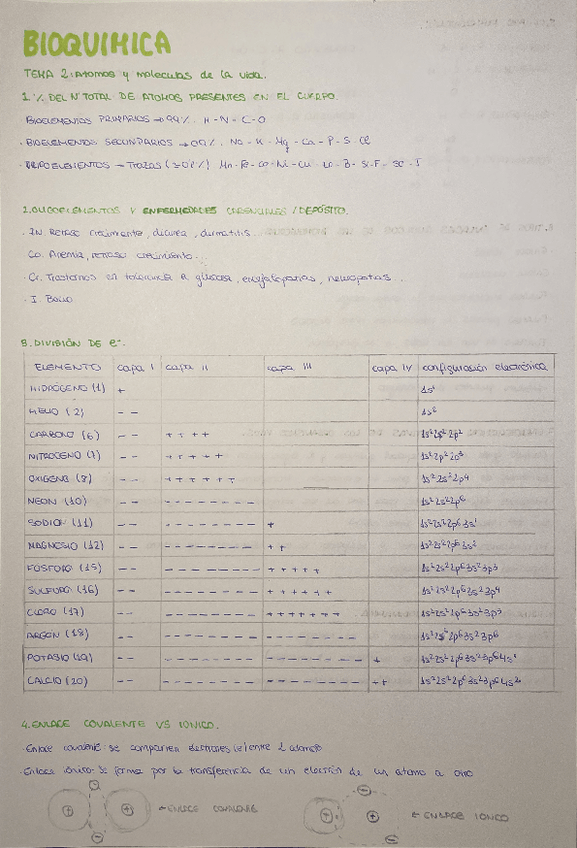 BIOQUIMICA
TEMA 2: Atomos y moleculas de la vida.
1. % DEL Nº TOTAL DE ATOMOS PRESENTES EN EL CUERPO.
BIOELEMENTOS PRIMARIOS → 99%. H - N - C - O
· BIOELEMENTOS SECUNDARIOS → 0,9%. Na - K - Mg - Ca - P - S - Cl
OLIGOELEMENTOS - TRAZAS Mn - Fe - Co - Ni - Cu - B - Si - F - I
2. OLIGOELEMENTOS Y ENFERMEDADES CARENCIALES / DEPÓSITO.
· ZN Retraso crecimiento, diarrea, dermatitis.
Co. Anemia, retraso crecimiento.
· Cr. Trastornos en tolerancia a glucosa, encefalopatias, neuropatias.
· I. Bocio
3. DIVISIÓN DE e-.
ELEMENTO capa I capa II capa III capa IV configuración electrónica
HIDRÓGENO (1) + 1s¹
HELIO (2) - - 1s²
CARBONO (6) - - + + + + 1s²2s²2p²
NITRÓGENO (7) - - + + + + +
OXIGENO (8) - - + + + + + + 1s²2s²2p4
NEON (10) - - - - - - - - - - 1s²2s²2p6
SODIO (11) - - - - - - - - - - + 1s²2s²2p63s¹
MAGNESIO (12) - - - - - - - - - - + + 1s²2s²2p63s²
FOSFORO (15) - - - - - - - - - - + + + + + 1s²2s²2p63s²3p3
SULFURO (16) - - - - - - - - - - + + + + + +
CLORO (17) - - - - - - - - - - + + + + + + +
ARGON (18) - - - - - - - - - - - - - - - - - - 1s²2s²2p63s²3p6
POTASIO (19) - - - - - - - - - - - - - - - - - - + 1s²2s²2p63s²3p64s¹
CALCIO (20) - - - - - - - - - - - - - - - - - - ++ 1s²2s²2p63s²3p64s²
4. ENLACE COVALENTE VS IONICO.
· Enlace covalente - se comparten electrones (e-) entre 2 atomos
· Enlace iónico - Se forma por la transferencia de un electrón de un atomo a otro
← ENLACE COVALENTE
← ENLACE IONICO